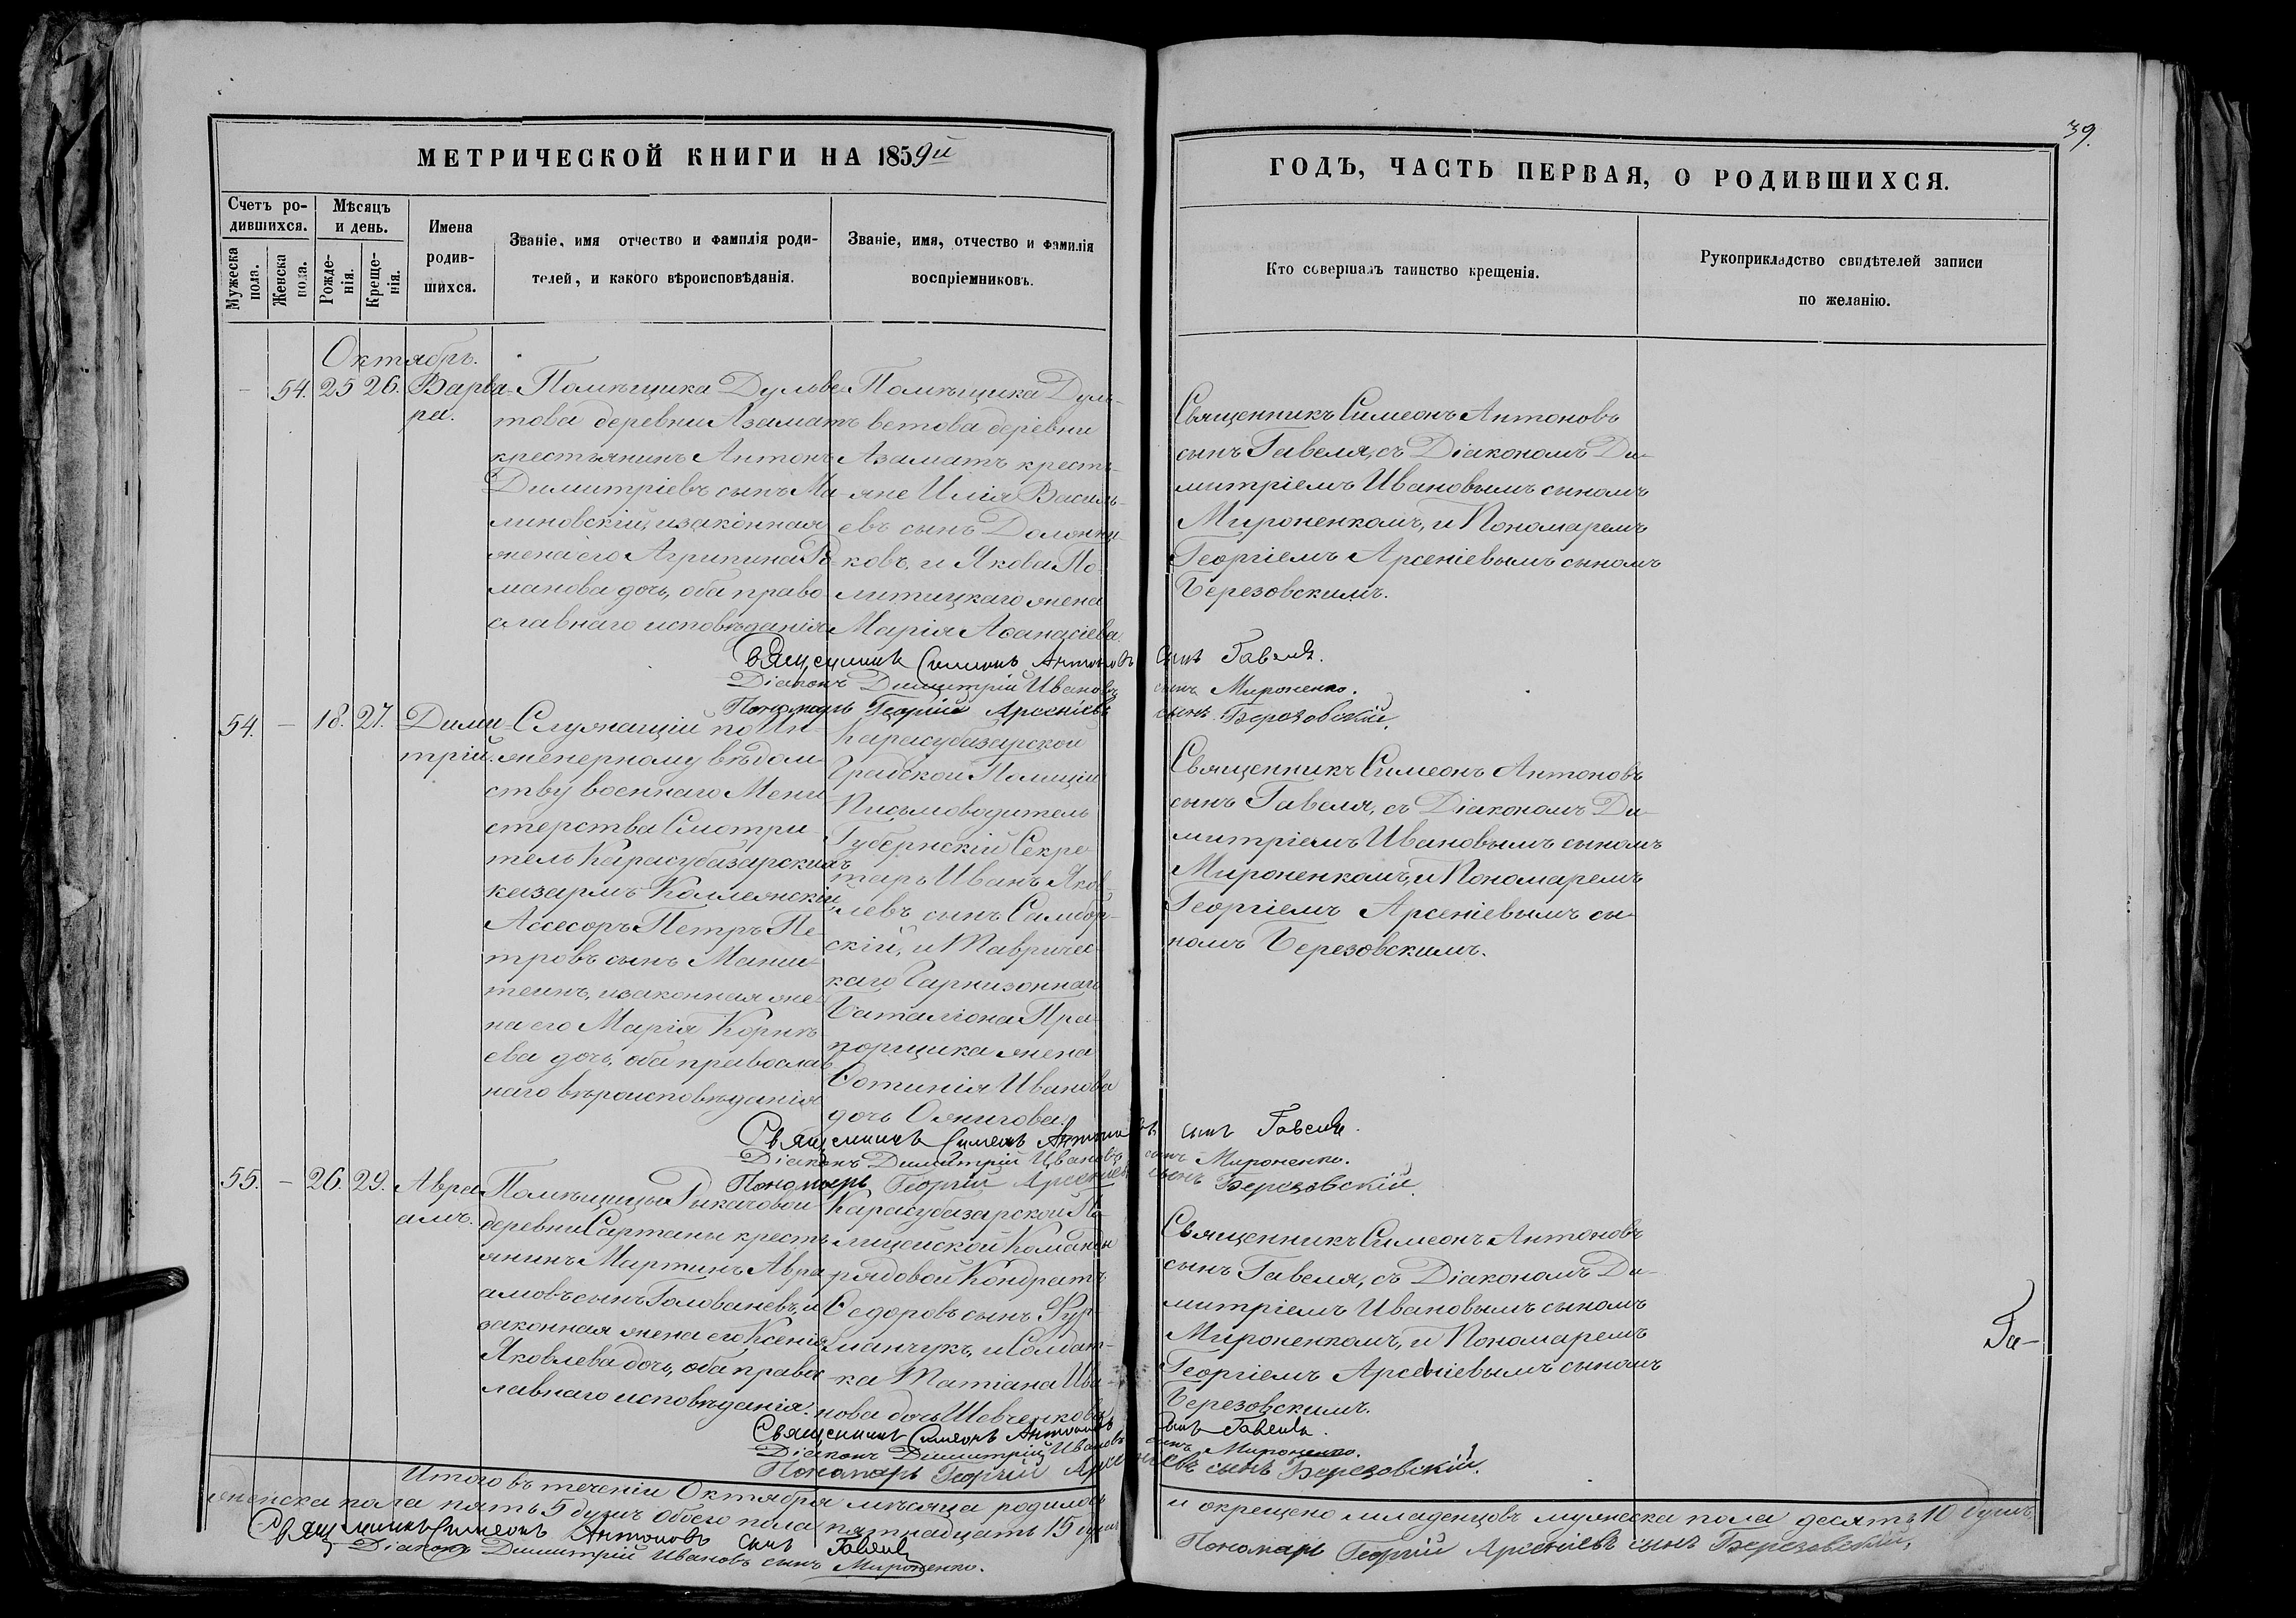 39.
МЕТРИЧЕСКОЙ КНИГИ НА 1859й
ГОДЪ, ЧАСТЬ ПЕРВАЯ, О РОДИВШИХСЯ.
Счетъ ро-
дившихся.
Мужеска
пола.
Женска
пола.
Мѣсяцъ
и день.
Рожде-
нія.
Креще-
нія.
Имена
родив-
шихся.
Званіе, имя отчество и фамилія роди-
телей, и какого вѣроисповѣданія.
Званіе, имя, отчество и фамилія
воспріемниковъ.
Кто совершалъ таинство крещенія.
Рукоприкладство свидѣтелей записи
по желанію.
Октябрь.
- 54. 25 26.
Варва-
ра.
Помѣщика Дульве-
това деревни Азаматъ
крестьянинъ Антонъ
Димитріевъ сынъ Ма-
линовскій, и законная
жена его Агрипина Ро-
манова дочь, оба право
славнаго исповѣданія
Помѣщика Дуль-
ветова деревни
Азаматъ кресть-
яне Илія Василь-
евъ сынъ
ковъ, и Якова По
литицкаго жена
Марія Аѳанасіева.
Священникъ Симеонъ Антоновъ
сынъ Гавеля, съ Діакономъ Ди-
митріемъ Ивановымъ сыномъ
Мироненкомъ, и Пономаремъ
Георгіемъ Арсеніевымъ сыномъ
Березовскимъ.
Священникъ Симеонъ Антоновъ сынъ Гавеля.
Діаконъ Димитрій Ивановъ сынъ Мироненко.
Пономарь Георгій Арсеніевъ сынъ Березовскій.
54. - 18. 27.
Дими-
трій.
Служащій по Ин-
женерному вѣдом
ству военнаго Мини
стерства Смотри-
тель Карасубазарскихъ
казармъ Коллежскій
Ассесоръ Петръ Пе
тровъ сынъ
и законная же-
на его Марія Корнѣ-
ева дочь, оба православ
наго вѣроисповѣданія
Карасубазарской
Градской Полиціи
Письмоводитель
Губернскій Секре-
тарь Иванъ Яков-
левъ сынъ Самбор-
скій, и Тавричес-
каго Гарнизоннаго
Баталіона Пра-
порщика жена
Ѳотинія Иванова
дочь Ожигова.
Священникъ Симеонъ Антоновъ
сынъ Гавеля, съ Діакономъ Ди-
митріемъ Ивановымъ сыномъ
Мироненкомъ, и Пономаремъ
Георгіемъ Арсеніевымъ сы-
номъ Березовскимъ.
Священникъ Симеонъ Антоновъ сынъ Гавеля.
Діаконъ Димитрій Ивановъ сынъ Мироненко.
Пономарь Георгій Арсеніевъ сынъ Березовскій.
55. - 26. 29.
Авра-
амъ.
Помѣщицы Рыкачовой
деревни Сартаны кресть
янинъ Мартинъ Авра
амовъ сынъ Голованевъ, и
законная жена его Ксенія
Яковлева дочь, оба правос
лавнаго исповѣданія.
Карасубазарской По-
лицейской Команды
рядовой Кондратъ
Ѳедоровъ сынъ Фур-
манчукъ, и Солдат-
ка Татіана Ива-
нова дочь Шевченкова.
Священникъ Симеонъ Антоновъ
сынъ Гавеля, съ Діакономъ Ди-
митріемъ Ивановымъ сыномъ
Мироненкомъ, и Пономаремъ
Георгіемъ Арсеніевымъ сыномъ
Березовскимъ.
Га-
Священникъ Симеонъ Антоновъ сынъ Гавеля.
Діаконъ Димитрій Ивановъ сынъ Мироненко.
Пономарь Георгій Арсеніевъ сынъ Березовскій.
Итого въ теченіи Октября мѣсяца родилось и окрещено младенцовъ мужеска пола десять 10 душъ,
женска пола пять 5 душъ обоего пола пятнадцать 15 душъ
Священникъ Симеонъ Антоновъ сынъ Гавеля
Діаконъ Димитрій Ивановъ сынъ Мироненко.
Пономарь Георгій Арсеніевъ сынъ Березовскій,